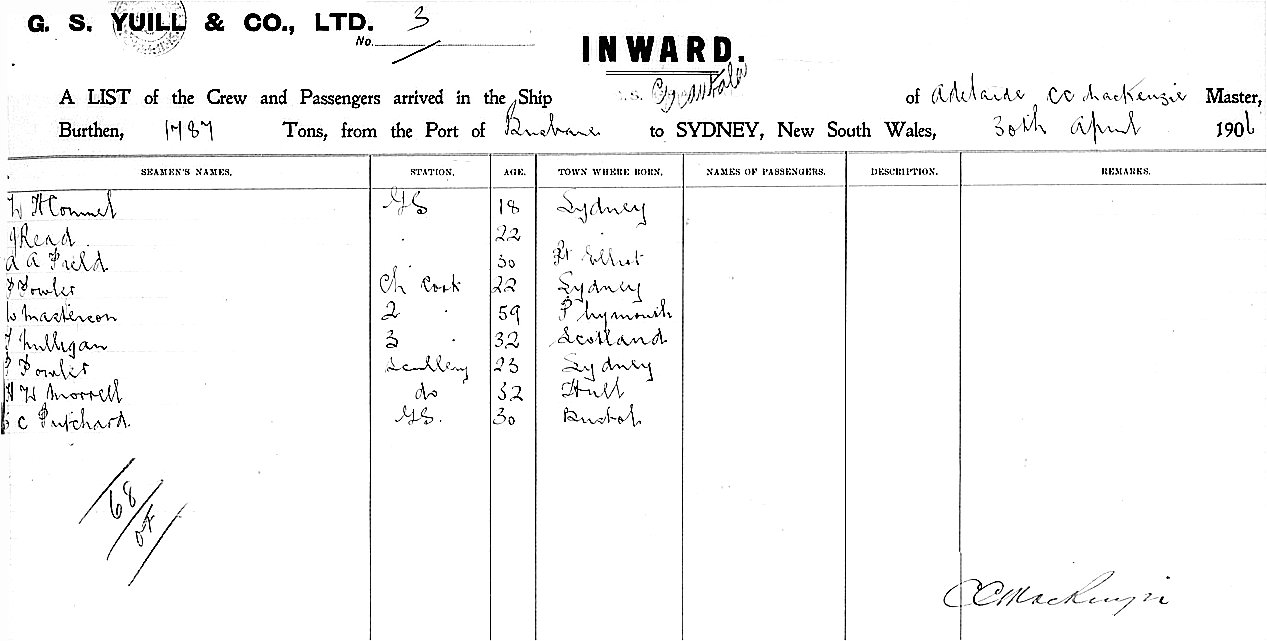 G. S. YUILL & CO., LTD. 3
No.
INWARD.
A LIST of the Crew and Passengers arrived in the Ship S.S. of Adelaide CC MacKenzie Master,
Burthen, 1787 Tons, from the Port of Brisbane to SYDNEY, New South Wales, 30th April 1906
SEAMEN'S NAMES. STATION. AGE. TOWN WHERE BORN. NAMES OF PASSENGERS. DESCRIPTION. REMARKS.
GS 18 Sydney
J Read " 22 "
A A Field 30 Pt Elliot
Fowler Ch Cook 22 Sydney
W Masterson 2 " 59 Plymouth
Mulligan 3 " 32 Scotland
Fowler Scullery 23 Sydney
H W Morrell do 32 Hull
C Pritchard GS. 30 Bristol
68
CC MacKenzie